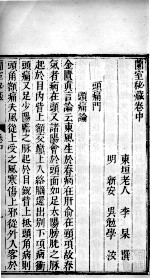 蘭室秘藏卷中
東垣老人 李 杲 撰
明 新安 吳勉學 校
頭痛門
頭痛論
金匱真言論云東風生於春病在肝俞在頸項故春
氣者病在頭又諸陽會於頭面如足太陽膀胱之脉
起於目內眥上額交巔上入絡腦還出別下項病衝
頭痛又足少陽膽之脉起於目銳眥上抵頭角病則
頭角額痛夫風從上受之風寒傷上邪從外入客於